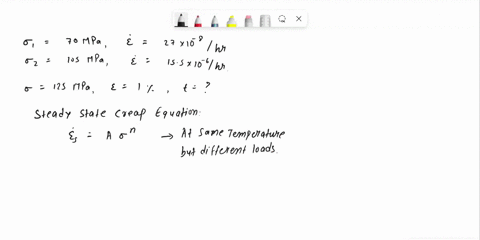 σ₁ = 70 MPa, ε̇ = 27 × 10⁻⁸ /hr
σ₂ = 105 MPa, ε̇ = 15.5 × 10⁻⁶ /hr.
σ = 125 MPa, ε = 1 %, t = ?
Steady State Creap Equation:
ε̇ₛ = A σⁿ → At Same Temperature
but different loads.